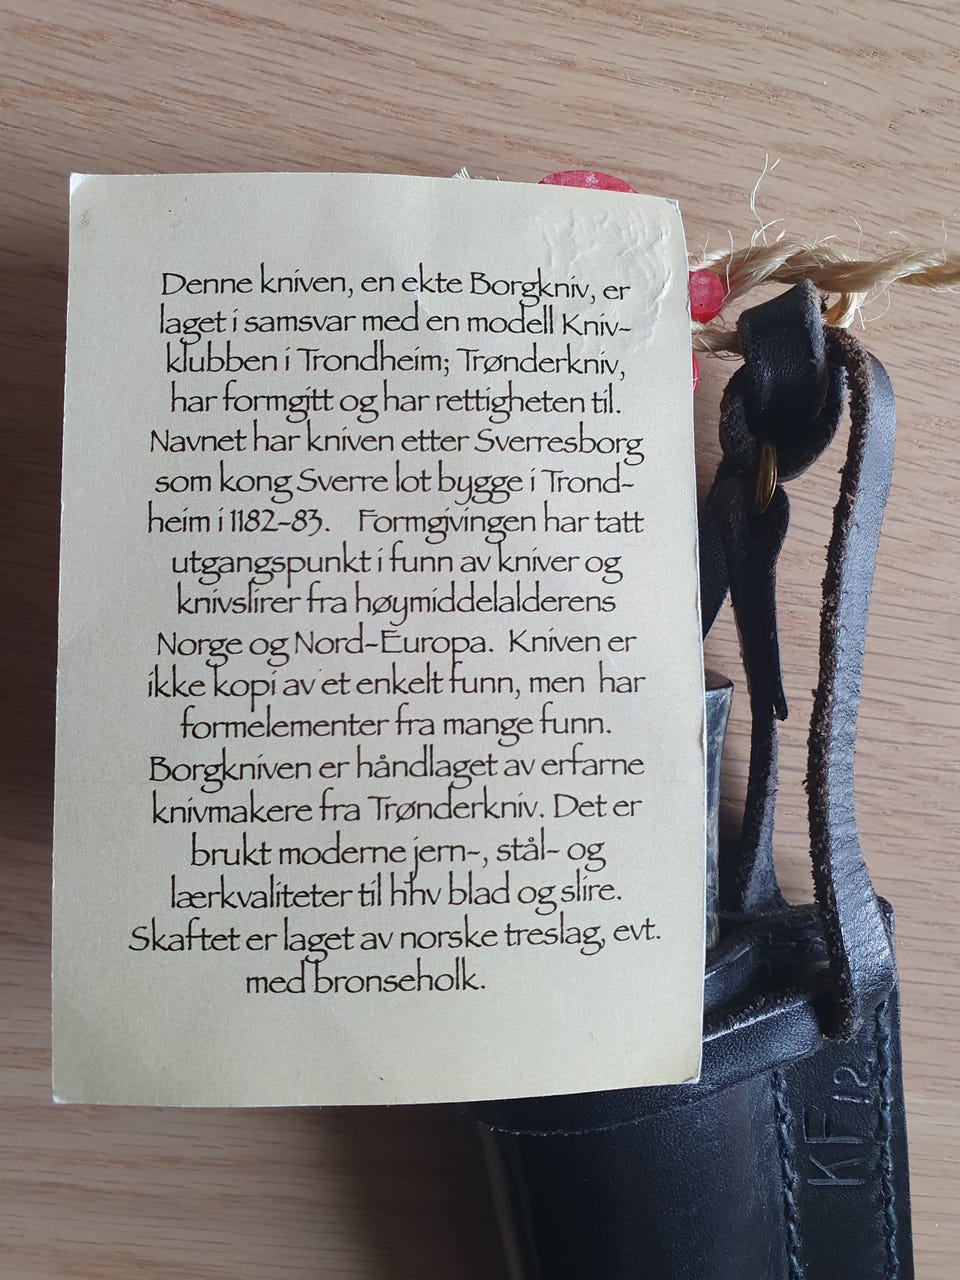 Denne kniven, en ekte Borgkniv, er
laget i samsvar med en modell Kniv-
klubben i Trondheim; Trønderkniv,
har formgitt og har rettigheten til.
Navnet har kniven etter Sverresborg
som kong Sverre lot bygge i Trond-
heim i 1182-83. Formgivingen har tatt
utgangspunkt i funn av kniver og
knivslirer fra høymiddelalderens
Norge og Nord-Europa. Kniven er
ikke kopi av et enkelt funn, men har
formelementer fra mange funn.
Borgkniven er håndlaget av erfarne
knivmakere fra Trønderkniv. Det er
brukt moderne jern-, stål- og
lærkvaliteter til hhv blad og slire.
Skaftet er laget av norske treslag, evt.
med bronseholk.
KF 12